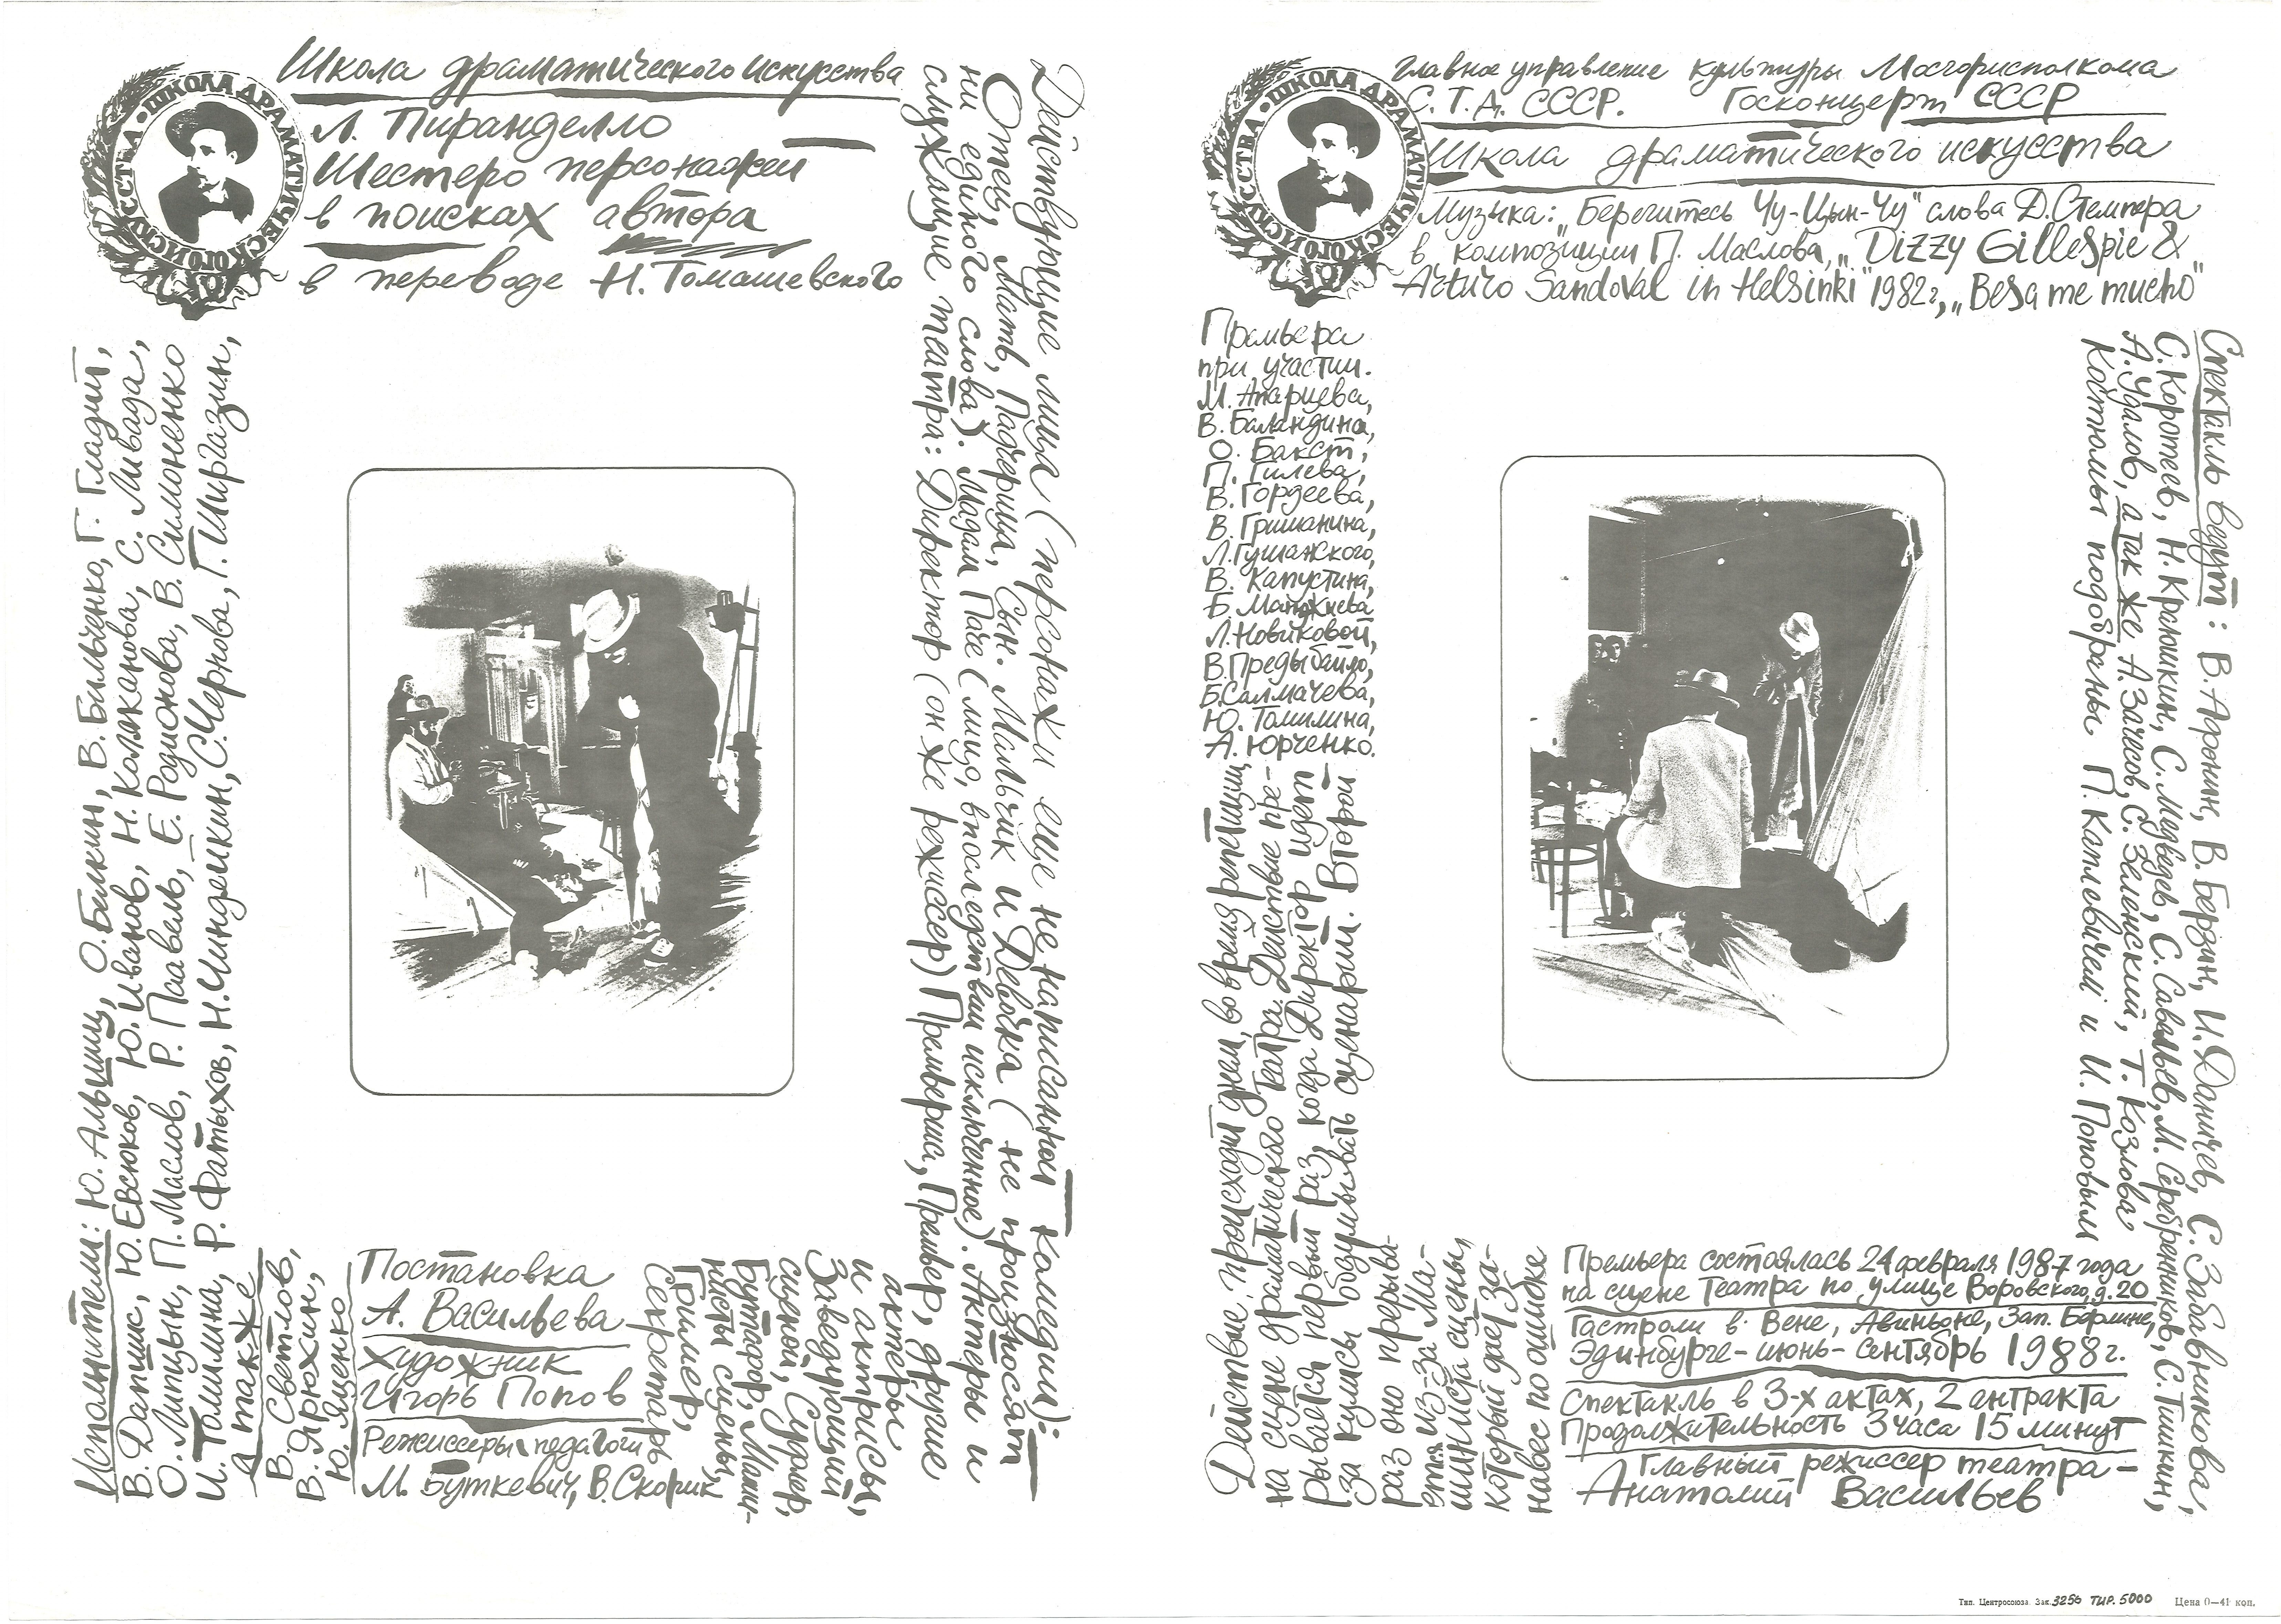 Школа драматического искусства
ШКОЛА ДРАМАТИЧЕСКОГО ИСКУССТВА
Л. Пиранделло
Шестеро персонажей
в поисках автора
в переводе Н. Томашевского
Исполнители: Ю. Альшиц, О. Белкин, В. Бильченко, Г. Гладий,
В. Дапшис, Ю. Евсюков, Ю. Иванов, Н. Коляканова, С. Ливада,
О. Липцын, П. Маслов, Р. Паавель, Е. Родионова, В. Симоненко
И. Томилина, Р. Фатыхов, Н. Чиндейкин, С. Чернова, Г. Ширгазин,
а также
В. Светлов,
В. Ярюхин,
Ю. Яценко
Постановка
А. Васильева
Художник
Игорь Попов
Режиссеры педагоги
М. Буткевич, В. Скорик
Действующие лица (персонажи еще не написанной комедии):
Отец, Мать, Падчерица, Сын. Мальчик и Девочка (не произносят
ни единого слова). Мадам Паче (лицо, впоследствии исключенное). Актеры и
служащие театра: Директор (он же режиссер) Премьерша, Премьер, другие
актеры
и актрисы,
Заведующий
сценой, Суфлер,
Бутафор, Маши-
нисты сцены,
Гример,
Секретарь
ШКОЛА ДРАМАТИЧЕСКОГО ИСКУССТВА
Главное управление культуры Мосгорисполкома
С.Т.Д. СССР. Госконцерт СССР
Школа драматического искусства
Музыка: „Берегитесь Чу-Цын-Чу" слова Д. Стемпера
в композиции П. Маслова, „Dizzy Gillespie &
Arturo Sandoval in Helsinki" 1982г, „Besa me mucho"
Премьера
при участии.
М. Апарцева,
В. Баландина,
О. Бакст,
П. Гилева,
В. Гордеева,
В. Гришанина,
Л. Гушанского,
В. Капустина,
Б. Манжиева
Л. Новиковой,
В. Предыбайло,
Б. Салмачева,
Ю. Томилина,
А. Юрченко.
Действие происходит днем, во время репетиции,
на сцене драматического Театра. Действие пре-
рывается первый раз, когда Директор идет
за кулисы обдумывать сценарий. Второй
раз оно прерыва-
ется из-за Ма-
шиниста сцены,
который дает за-
навес по ошибке
Спектакль ведут: В. Афонин, В. Берзин, И. Даничев, С. Забавникова,
С. Коротеев, Н. Кралюшкин, С. Медведев, С. Савельев, М. Серебренников, С. Тишкин,
А. Удалов, а так же А. Зачесов, С. Зеленский, Т. Козлова
Костюмы подобраны П. Каплевичем и И. Поповым
Премьера состоялась 24 февраля 1987 года
на сцене Театра по улице Воровского, д. 20
Гастроли в Вене, Авиньоне, Зап. Берлине,
Эдинбурге - июнь - сентябрь 1988г.
Спектакль в 3-х актах, 2 антракта
Продолжительность 3 часа 15 минут
Главный режиссер театра -
Анатолий Васильев
Тип. Центросоюза. Зак. 3256 ТИР. 5000 Цена 0—41 коп.